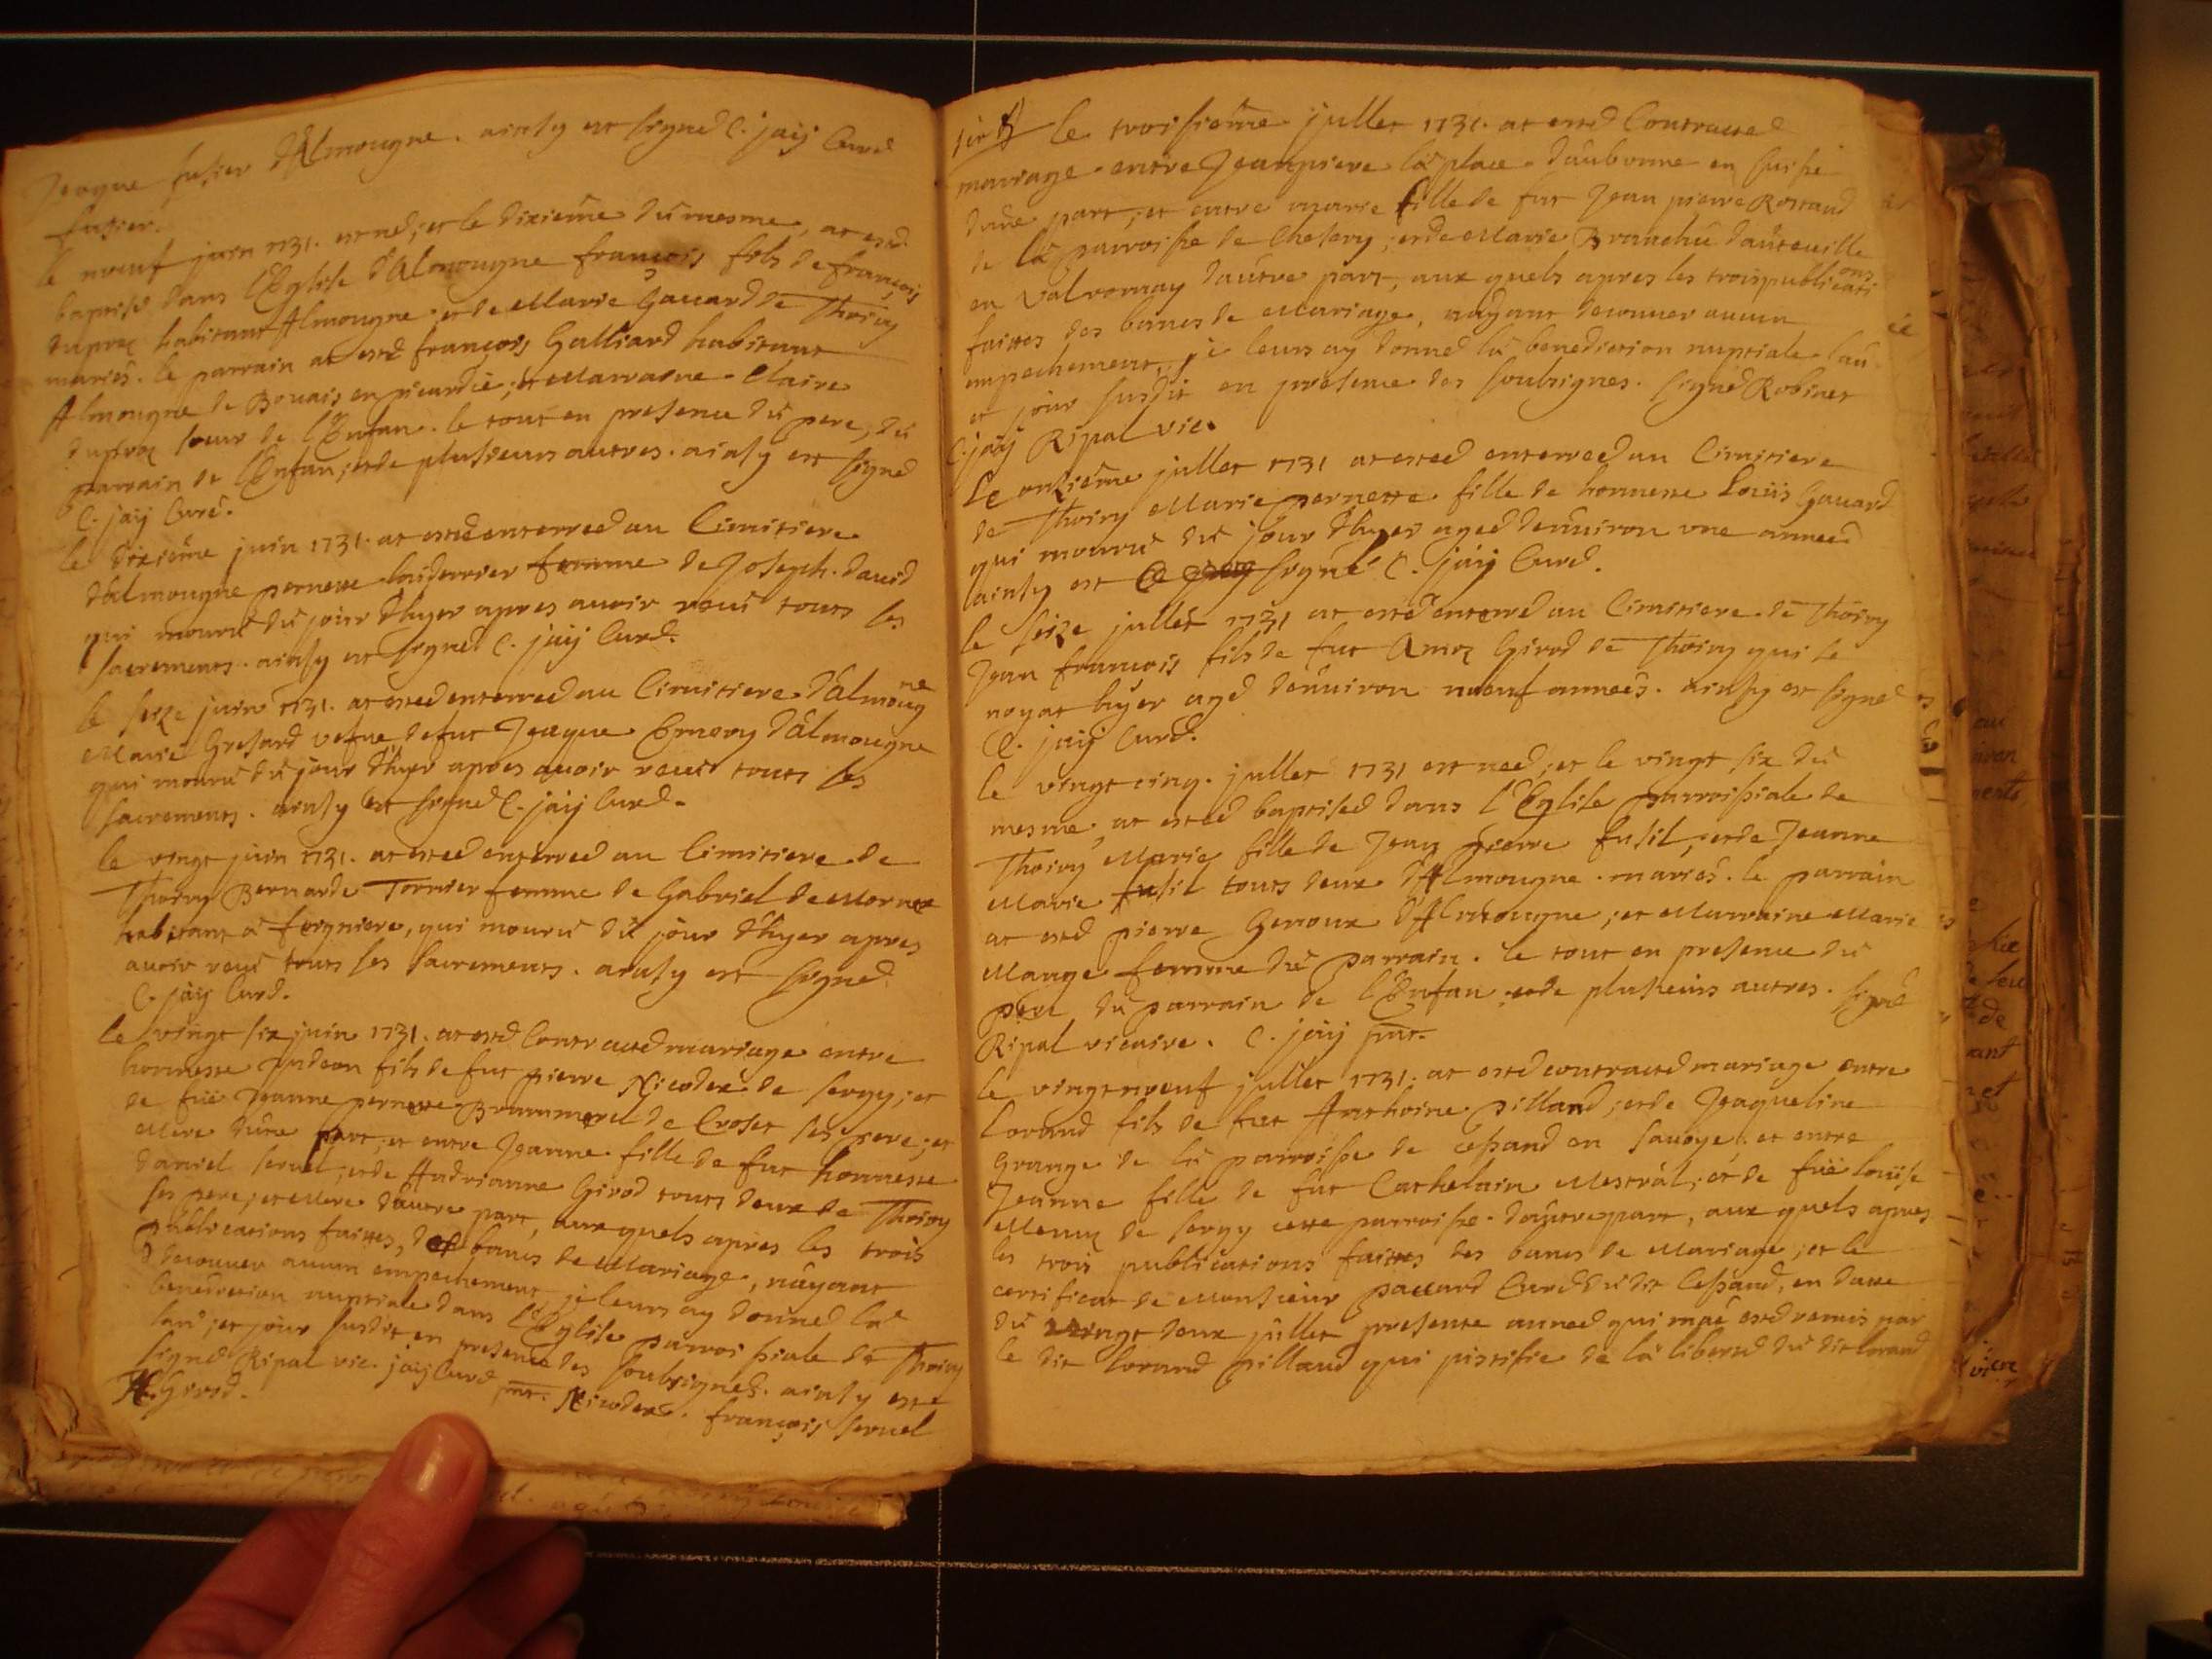 Jeaque fusier d'Almougne. ainsy est signed C. jaÿ Cured
fusier.
le nœuf juin 1731. est ned, et le dixieme du mesme, at esté
baptisé dans l'Eglise d'Almougne françois fils de françois
duprez habitant Almougne et de Marie Gauard de Thoiry
mariés. le parrain at esté françois Galliard habitant
Almougne de Bouais en picardie; et Marraine Claire
duprez sœur de l'Enfan. le tout en presence du pere, du
parrain de l'Enfan, et de plusieurs autres. ainsy est signed
C. jaÿ Curé.
le dixieme juin 1731. at esté enterred au Cimitiere
d'almougne pernette femme de Joseph. David
qui mouru du jour d'hyer apres auoir receu touts les
sacrements. ainsy est signed C. jaÿ Cured.
le seize juin 1731. at ested enterred au Cimitiere d'almougne
Marie Gresard vefue de fut Jeaque Emery d'almougne
qui mouru du jour d'hyer apres auoir receu touts les
sacrements. ainsy est signed C. jaÿ Cured.
le vingt juin 1731. at ested enterred au Cimitiere de
Thoiry Bernarde Tornier femme de Gabriel de Mornex
habitant à fegniere, qui mouru du jour d'hyer apres
auoir receu touts les sacrements. ainsy est signed
C. jaÿ Cured.
le vingt six juin 1731. at ested Contracted mariage entre
honneste fils de fut pierre Nicodex de sergy; et
de fuë Jeanne pernette de Croset ses pere; et
Mere d'une part; et entre Jeanne fille de fut honneste
Daniel seruel, et de Andrianne Girod touts deux de Thoiry
ses pere; et Mere d'autre part, aux quels apres les trois
publications faittes, des bancs de Mariage, n'ayant
decouuer aucun empechement je leurs ay donned la
benediction nuptiale dans l'Eglise parroissiale de Thoiry
l'an; et jour susdit en presence des soubsignes. ainsy est
signed Ripal vic. jaÿ Cured pnt. Nicodex. françois seruel
H. Girod.
le troisieme jullet 1731. at ested Contracted
mariage entre Jeanpiere la place d'aubonne en suisse
d'une part, et entre marie fille de fut Jean pierre Rostand
de la parroisse de Chesery; et de Marie Branchu d'auteuille
en Valromay d'autre part, aux quels apres les trois publications
faittes des bancs de Mariage, n'ayant decouuer aucun
empechement, je leurs ay donned la benediction nuptiale l'an
et jour susdit en presence des soubsignes. signed Robinet
C. jaÿ Ripal vic.
Le onzieme jullet 1731 at ested enterred au Cimitiere
de Thoiry Marie pernette fille de honneste Louis Gauard
qui mouru du jour d'hyer aged d'enuiron vne anneed
ainsy est signé C. jaÿ Cured.
le seize jullet 1731 at ested enterred au Cimitiere de Thoiry
Jean françois fils de fut Amez Girod de Thoiry qui se
noyat hyer aged d'enuiron nœuf anneés. ainsy est signed
C. jaÿ Cured.
le vingt cinq. jullet 1731 est need, et le vingt six du
mesme, at ested baptised dans l'Eglise parroissiale de
Thoiry Marie fille de Jean pierre fusil, et de Jeanne
Marie fusil touts deux d'Almougne mariés. le parrain
at ested pierre Genoux d'Almougne, et Marraine Marie
Mange femme du parrain. le tout en presence du
pere du parrain de l'Enfan et de plusieurs autres. signed
Ripal vicaire. C. jaÿ pnt.
le vingt nœuf jullet 1731. at ested contracted mariage entre
Lorand fils de fut Anthoine pilland, et de Jeaqueline
Grange de la parroisse de Cessand en sauoye, et entre
Jeanne fille de fut Cathelain Mestral, et de fuë louïse
de sergy cette parroisse d'autre part, aux quels apres
les trois publications faittes des bancs de Mariage, et le
certificat de Monsieur paccard Cured du dit Cessand, en datte
du vingt deux jullet presente anneed qui m'at ested remis par
le dit lorand pilland qui justifie de la liberted du dit lorand